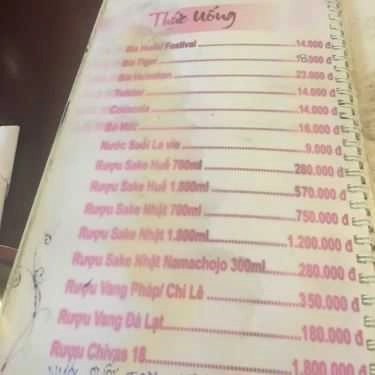 Thức Uống
Bia Huda/ Festival 14.000 đ
Bia Tiger 18.000 đ
Bia Heineken 23.000 đ
14.000 đ
Cocacola 14.000 đ
Bò Húc 16.000 đ
Nước Suối La vie 9.000 đ
Rượu Sake Huế 700ml 280.000 đ
Rượu Sake Huế 1.800ml 570.000 đ
Rượu Sake Nhật 700ml 750.000 đ
Rượu Sake Nhật 1.800ml 1.200.000 đ
Rượu Sake Nhật Namachojo 300ml 280.000 đ
Rượu Vang Pháp/ Chi Lê 350.000 đ
Rượu Vang Đà Lạt 180.000 đ
Rượu Chivas 18 1.800.000 đ